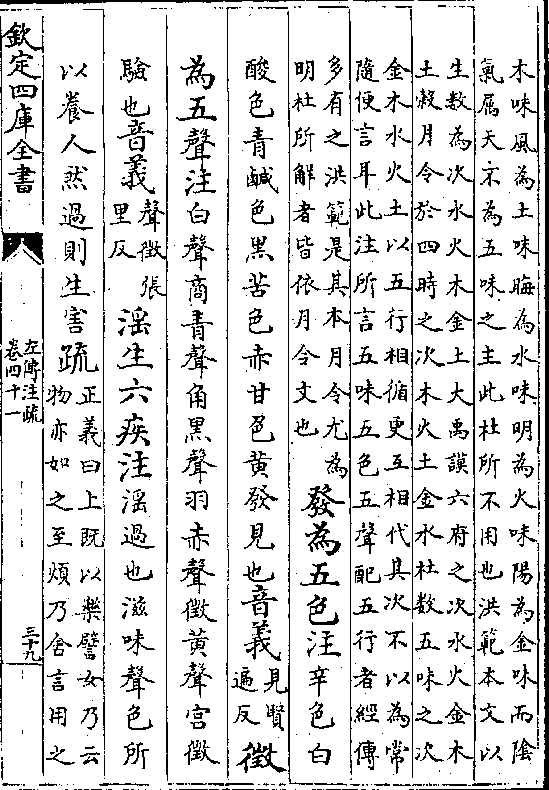 木味風為土味晦為水味明為火味陽為金味而陰
氣属天宗為五味之主此杜所不用也洪範本文以
生数為次水火木金土大禹謨六府之次水火金木
土穀月令於四時之次木火土金水杜数五味之次
金木水火土以五行相循更互相代其次不以為常
隨便言耳此注所言五味五色五聲配五行者經傳
多有之洪範是其本月令尤為
明杜所解者皆依月令文也
發為五色注辛色白
酸色青鹹色黒苦色赤甘色黄發見也音義
見賢
遍反
徴
為五聲注白聲商青聲角黒聲羽赤聲徴黄聲宫徴
驗也音義
聲徴張
里反
滛生六疾注滛過也滋味聲色所
以養人然過則生害疏
正義曰上既以樂譬女乃云
物亦如之至煩乃舍言用之
欽定四庫全書
左傳注疏
卷四十一
三十九